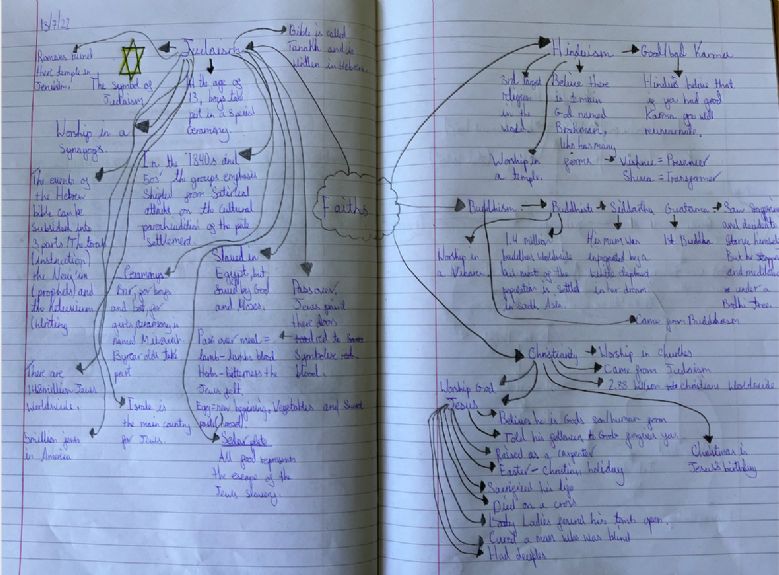 13/7/22
Judaism
Bible is called
Tanakh and is
written in Hebrew
Romans ruined
there temple in
Jerusalem.
The symbol of
Judaism
At the age of
13, boys take
part in a special
ceramony.
Worship in a
Synagogs.
In the "1840s and
50s" the groups emphasis
shifted from Satirical
attacks on the cultural
of the pale
settlement.
The events of
the Hebrew
bible can be
subsided into
3 parts: The torah
(instruction)
the Nevi'im
(prophets) and
the
(Writing
Ceramonys
Bar, for boys
and bat, for
girls, ceramony is
named Mitzvah
take
part
Slaved in
Egypt, but
Saved by God
and Moses.
Pass over
Jews paint
there doors
red to
Symbolise
blood.
Pass over meal =
lamb - lambs blood
- bitterness the
Jews felt,
Egg = new beginning, Vegetables and
There are
Jews
worldwide.
is
the main country
for Jews.
5 million jews
in America
Seder plate
All food represents
the escape of the
Jews slavery.
Faiths
Hinduism
Good/bad Karma
3rd largest
religion
in the
world.
Believe there
is 1 main
God named
Brahman,
who has many
forms
Vishnu = Preserver
Shiva = Transformer
Hindus believe that
if you had good
Karma you will
reincarnate.
Worship in
a temple.
Buddhism
Buddhists
Siddartha
Guatama
Worship in
a
1.4 million
buddhas worldwide
but most of the
population is settled
in south Asia.
His mum was
by a
white elephant
in her dream.
1st Buddha
Saw
and decided to
Starve himself
But he stopped
and meditated
under a
Bodhi Tree.
Came from Buddhism
Christianity
Worship in churches
Came from Judaism
2.38 billion christians Worldwide
Worship God
Jesus
Believes he is Gods son/human form
Told his followers to Gods forgives you
Raised as a carpenter
Easter - Christian holiday
Sacrificed his life
Died on a cross
Ladies found his tomb open.
Cured a man who was blind
Had deciples
Christmas is
Jesus's birthday